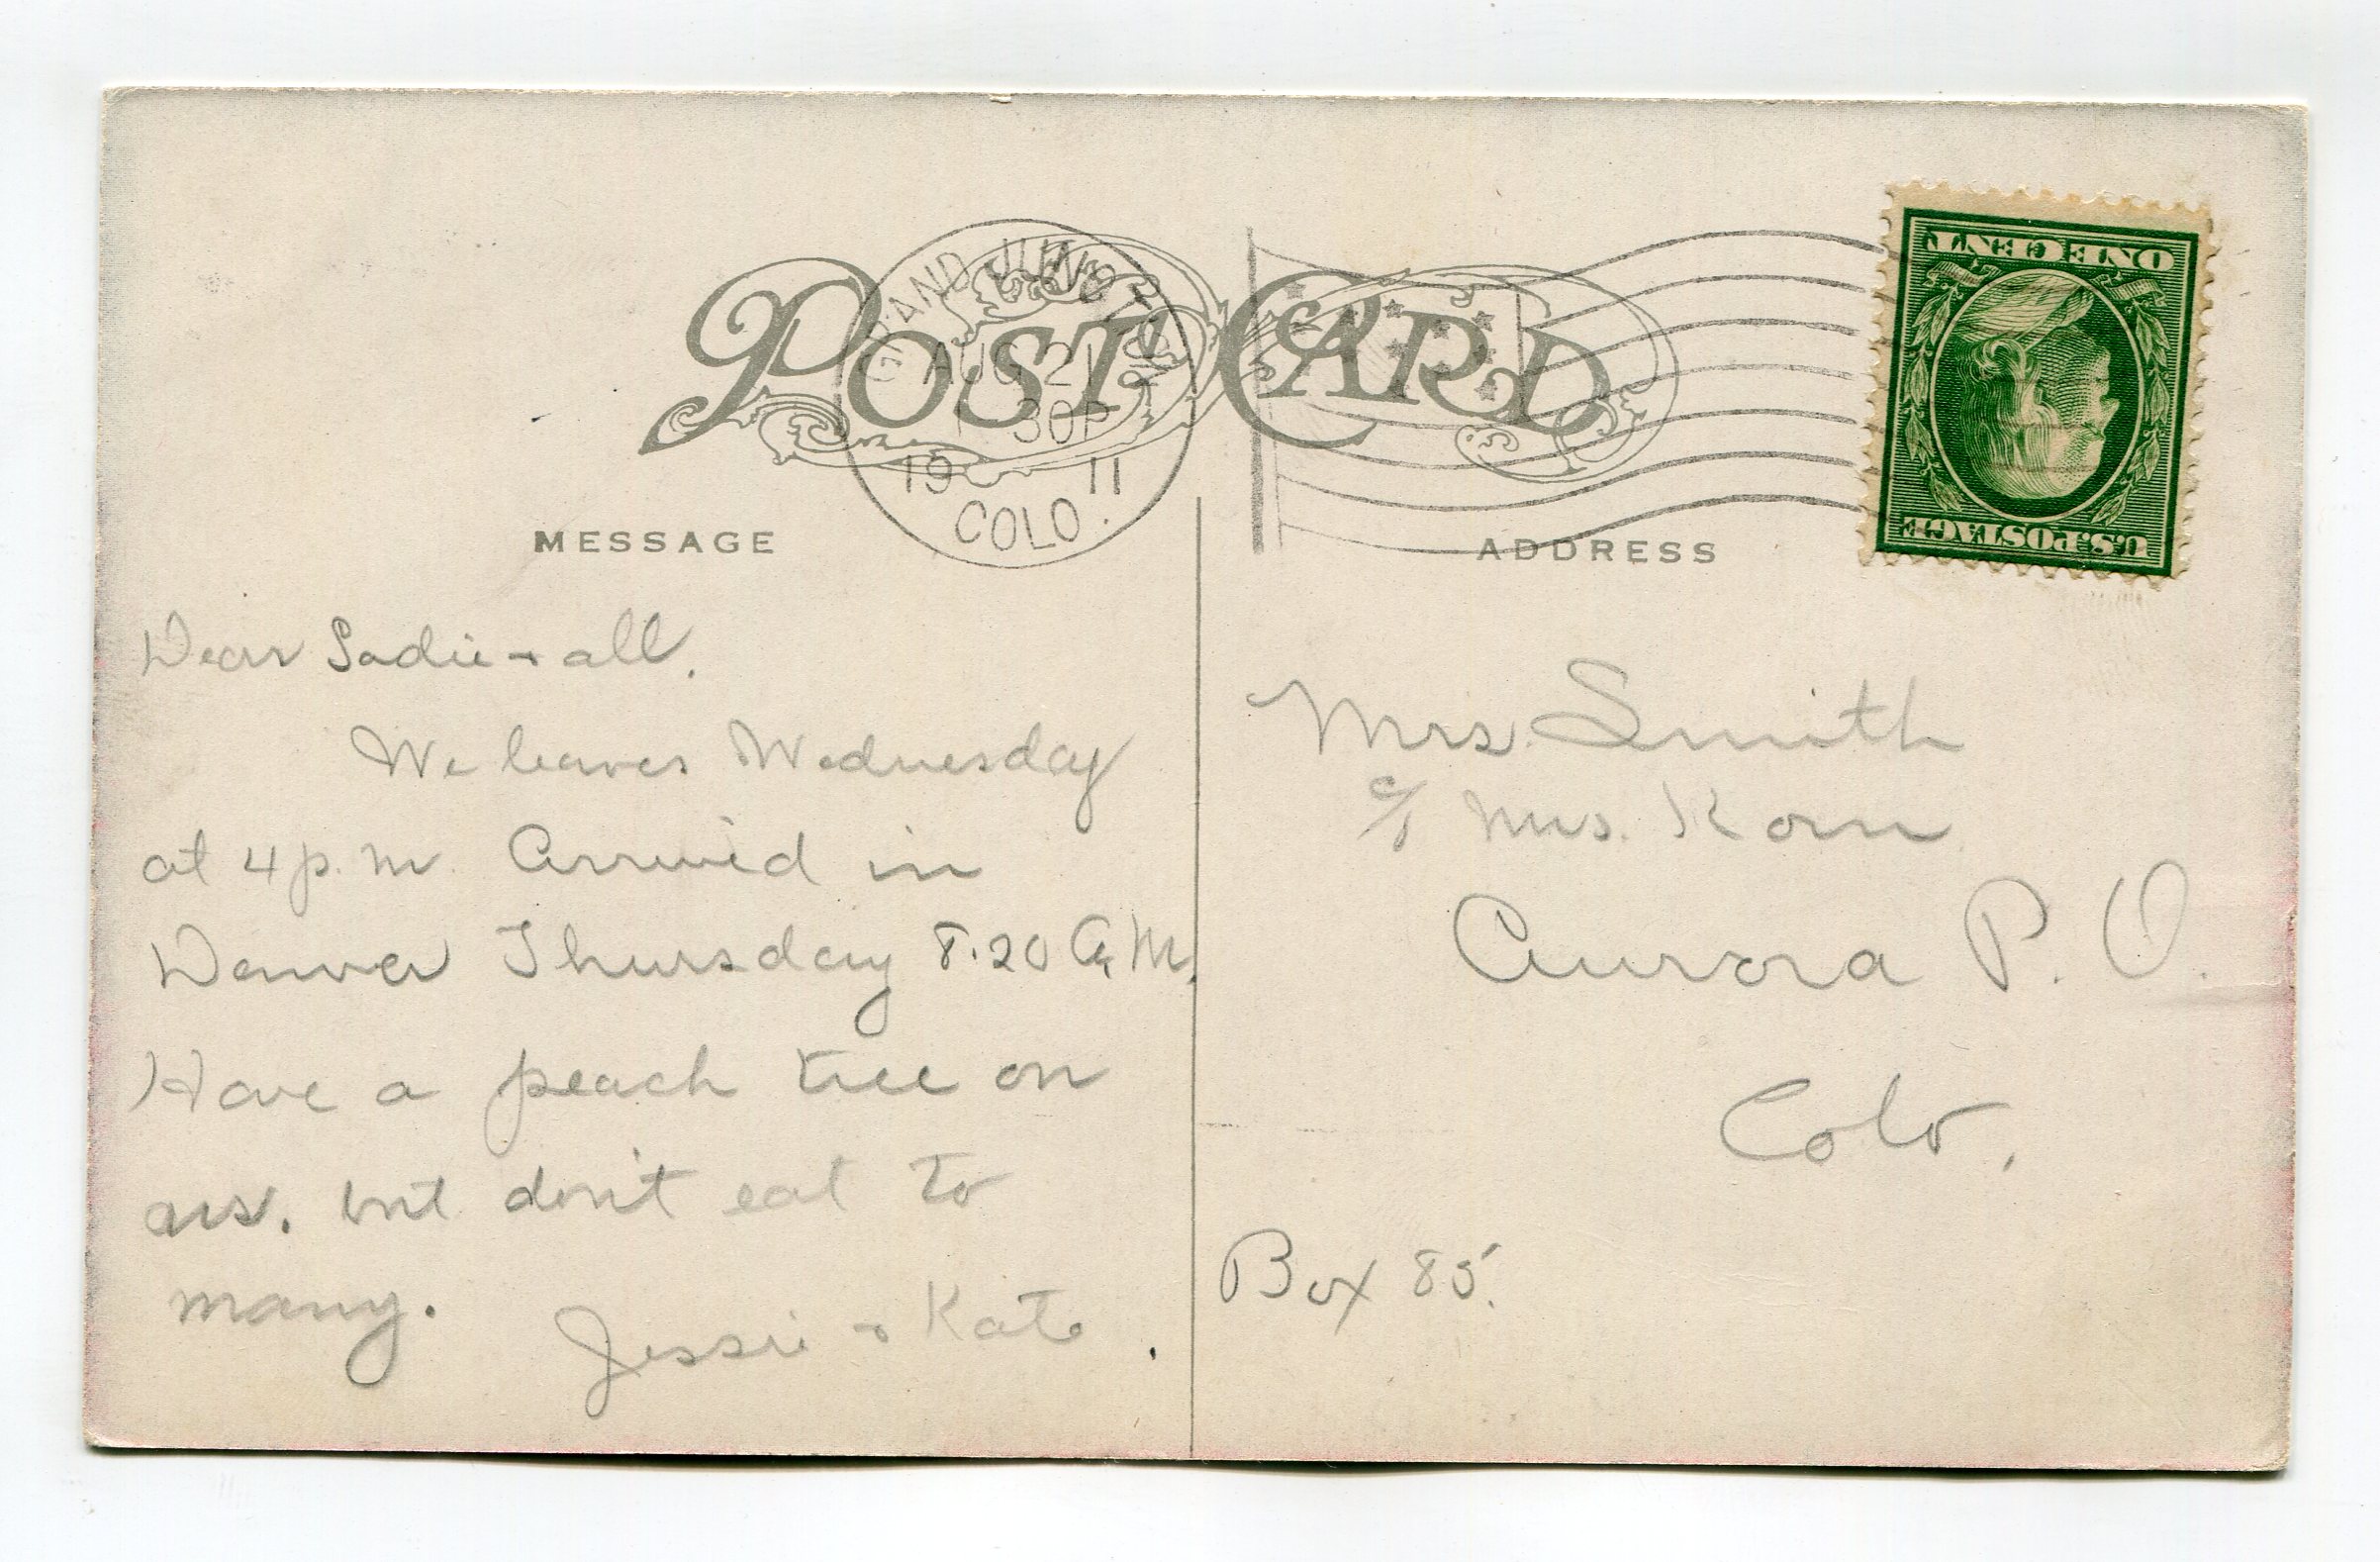 POST CARD
GRAND JUNCTION
AUG 21
30P
19 11
COLO.
ONE CENT
U.S. POSTAGE
MESSAGE
ADDRESS
Dear Sadie + all.
We leaves Wednesday
at 4 p. m. Arrived in
Denver Thursday 8.20 A.M.
Have a peach tree on
us. but don't eat to
many.
Jessie + Kate.
Mrs. Smith
c/o Mrs. Korn
Aurora P. O.
Colo.
Box 85.